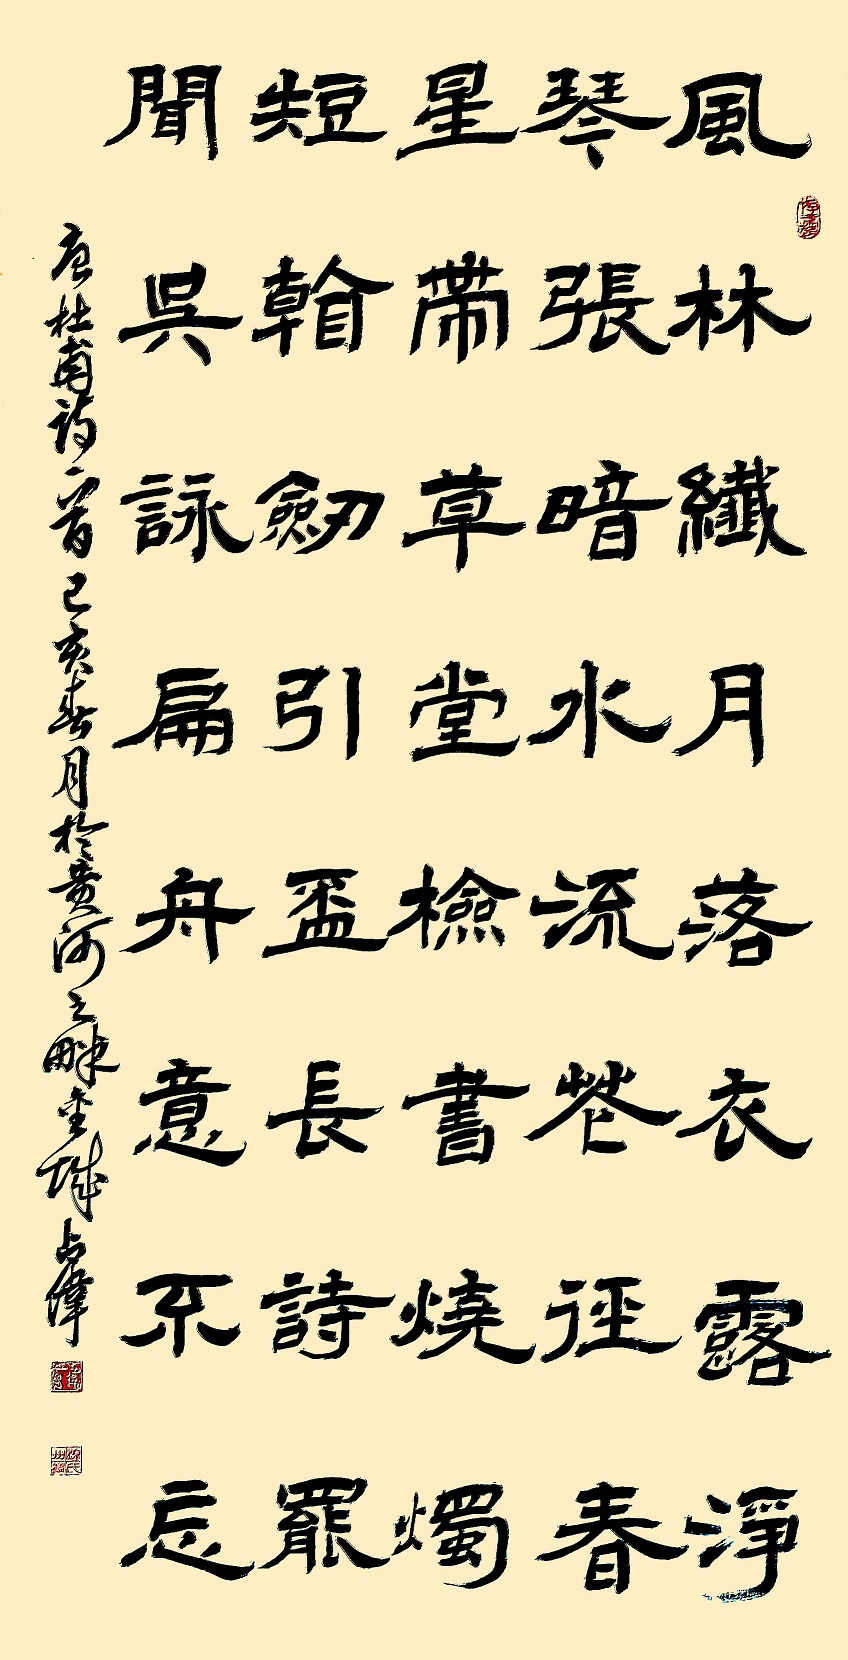 風林纖月落衣露淨
琴張暗水流花徑春
星帶草堂檢書燒燭
短看劒引盃長詩罷
聞吳詠扁舟意不忘
唐杜甫诗一首己亥春月於黄河之畔金城占偉